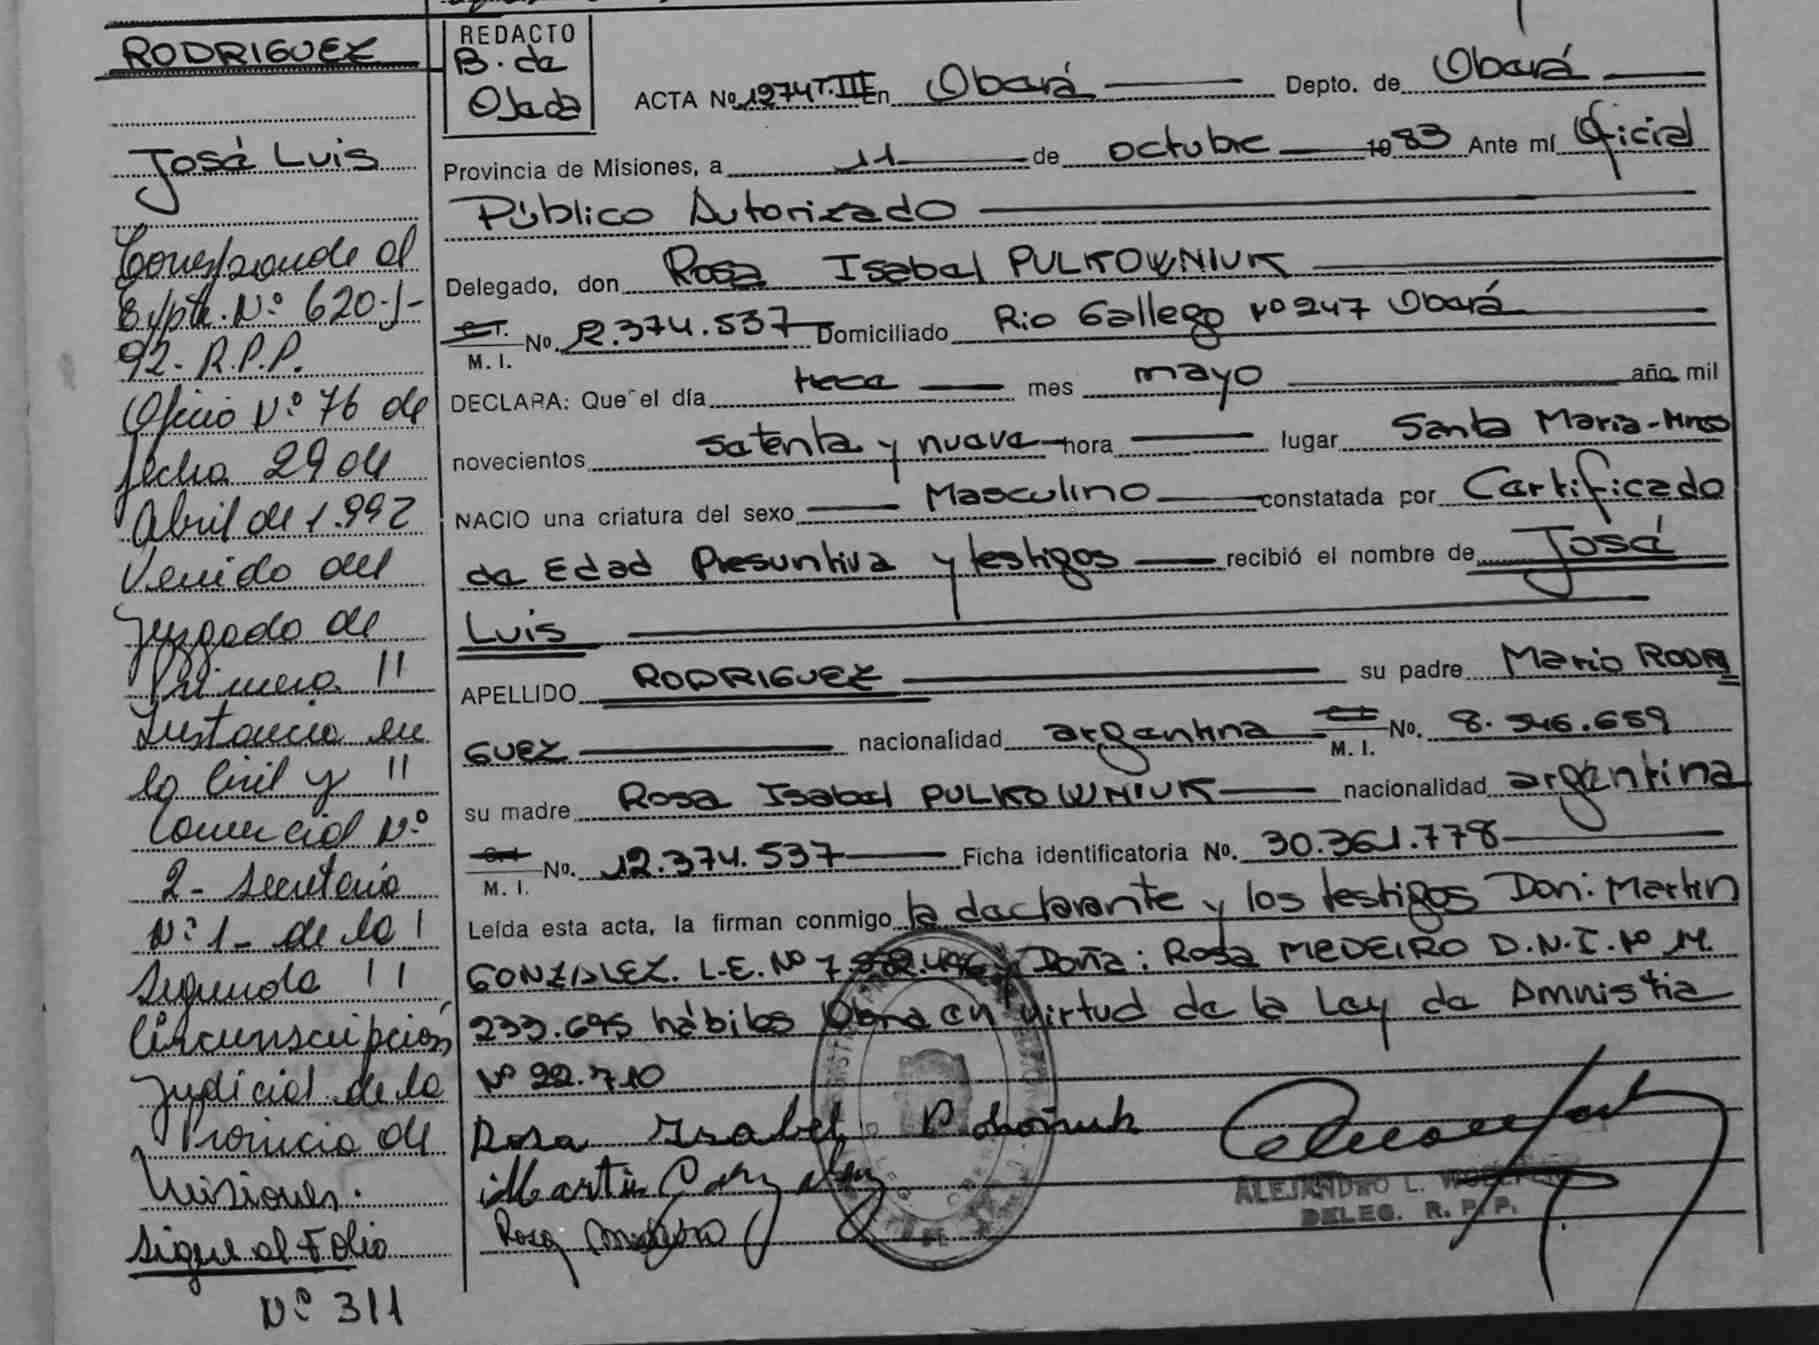 RODRIGUEZ
José Luis
Corresponde al
Expte. Nº 620-J-
92- R.P.P.
Oficio Nº 76 de
fecha 29 de
Abril de 1.992
Venido del
Juzgado de
Primera //
Instancia en
lo Civil y //
Comercial Nº
2- Secretaria
Nº 1- de la /
Segunda //
Circunscripción
Judicial de la
Provincia de
Misiones.
Sigue al Folio
Nº 311
REDACTO
B. de
Ojeda
ACTA Nº 1274 T. III En Oberá Depto. de Oberá
Provincia de Misiones, a 11 de octubre 19 83 Ante mí Oficial
Público Autorizado
Delegado, don Rosa Isabel PULKOWNIUK
M. I. No. 12.374.537 Domiciliado Rio Gallego Nº 247 Oberá
DECLARA: Que el día trece mes mayo año mil
novecientos setenta y nueve hora lugar Santa Maria-Mnes
NACIO una criatura del sexo Masculino constatada por Certificado
de Edad Presuntiva y testigos recibió el nombre de José
Luis
APELLIDO RODRIGUEZ su padre Mario RODRI
GUEZ nacionalidad argentina M. I. No. 8.546.659
su madre Rosa Isabel PULKOWNIUK nacionalidad argentina
M. I. No. 12.374.537 Ficha identificatoria No. 30.361.778
Leída esta acta, la firman conmigo la declarante y los testigos Don: Martin
GONZALEZ. L.E. Nº y Doña: Rosa MEDEIRO D.N.I. Nº M.
233.695 hábiles Obra en virtud de la Ley de Amnistia
Nº 22.710
Rosa Isabel
Martin Gonzalez
Rosa
ALEJANDRO L.
DELEG. R. P. P.